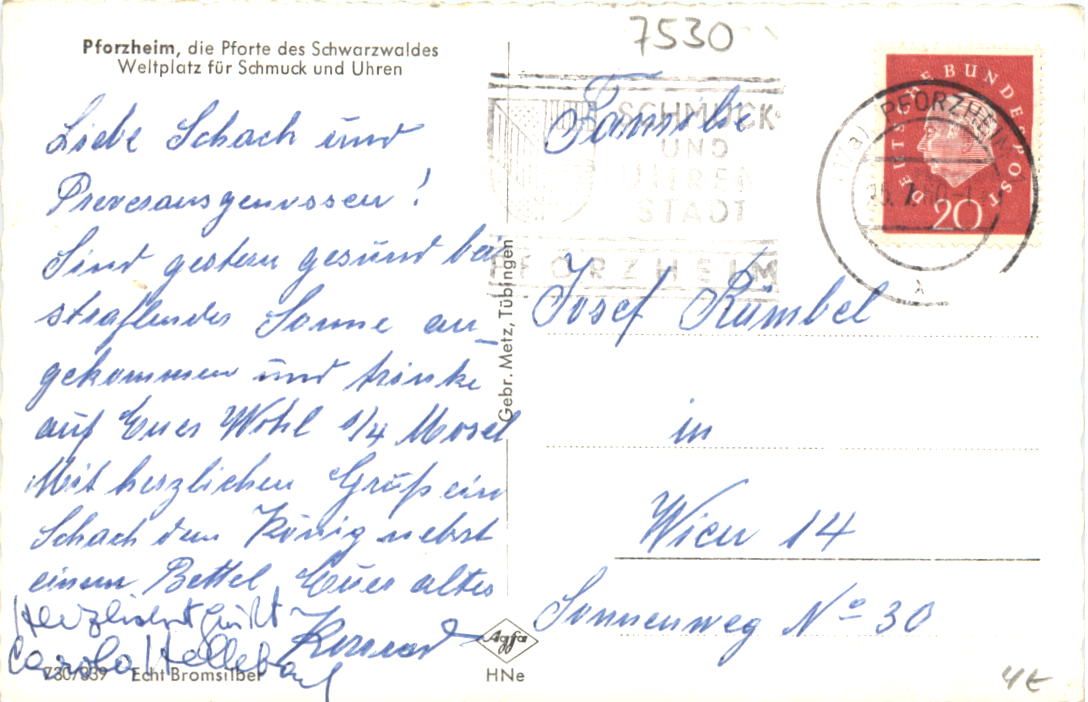 Pforzheim, die Pforte des Schwarzwaldes
Weltplatz für Schmuck und Uhren
Liebe Schach und
Preveransgenossen!
Sind gestern gesund bei
strahlender Sonne an-
gekommen und trinke
auf Euer Wohl 1/4 Mosel
Mit herzlichen Gruß ein
Schach dem König nebst
einem Bettel Euer alter
Konrad
Herzlichst grüßt
Carola
Z30/939 Echt Bromsilber
Gebr. Metz, Tübingen
Agfa
HNe
7530
SCHMUCK-
UND
UHREN
STADT
PFORZHEIM
PFORZHEIM
DEUTSCHE BUNDESPOST
20
Familie
Josef Kümbel
in
Wien 14
Sonnenweg No 30
4€